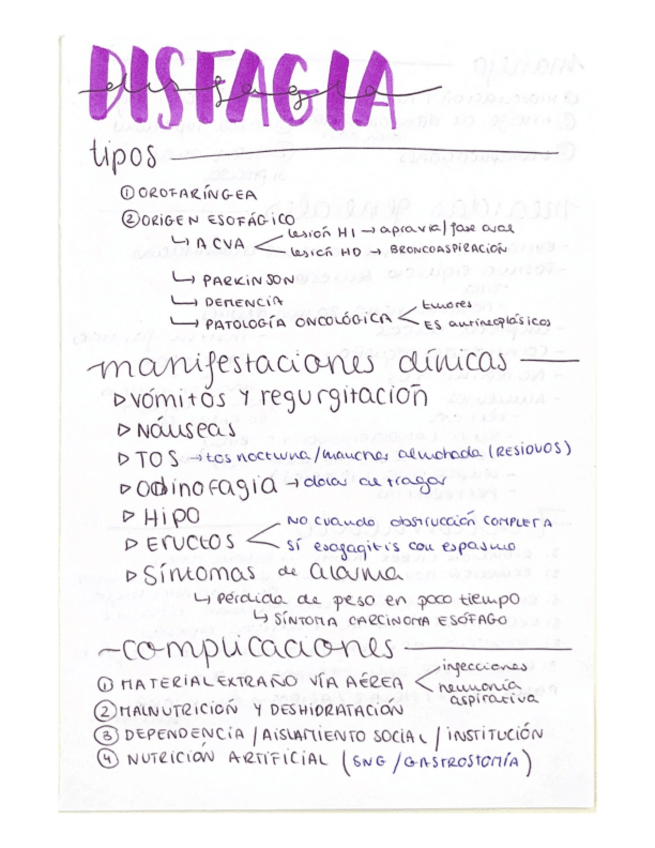 DISFAGIA
disfagia
tipos
① OROFARÍNGEA
② ORIGEN ESOFÁGICO
↳ ACVA < lesión HI → apraxia/fase oral
lesión HD → BRONCOASPIRACIÓN
↳ PARKINSON
↳ DEMENCIA
↳ PATOLOGÍA ONCOLÓGICA < tumores
ES antineoplásicos
manifestaciones clínicas
▷ vómitos y regurgitación
▷ Náuseas
▷ TOS → tos nocturna/manchas almohada (RESIDUOS)
▷ Odinofagia → dolor al tragar
▷ Hipo
▷ Eructos < NO cuando obstrucción COMPLETA
SÍ esofagitis con espasmo
▷ Síntomas de alarma
↳ Pérdida de peso en poco tiempo
↳ SÍNTOMA CARCINOMA ESÓFAGO
complicaciones
① MATERIAL EXTRAÑO VÍA AÉREA < infecciones
neumonía aspirativa
② MALNUTRICIÓN Y DESHIDRATACIÓN
③ DEPENDENCIA/AISLAMIENTO SOCIAL/INSTITUCIÓN
④ NUTRICIÓN ARTIFICIAL (SNG/GASTROSTOMÍA)